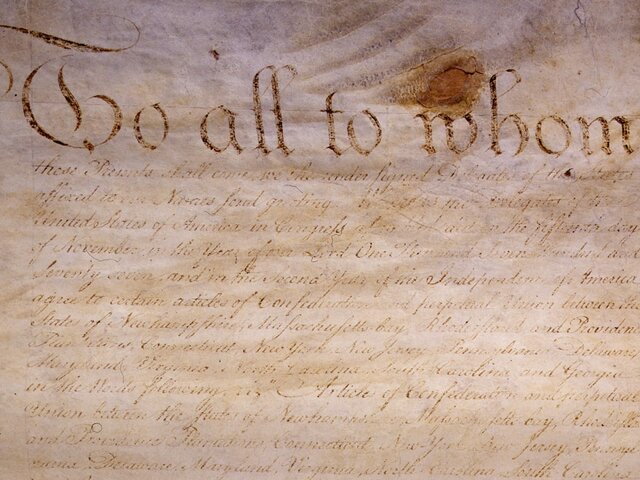 To all to whom
these Presents shall come, we the under signed Delegates of the States
affixed to our Names send greeting. Whereas the Delegates of the
United States of America in Congress assembled did on the fifteenth day
of November in the Year of our Lord One Thousand Seven Hundred and
Seventy seven, and in the Second Year of the Independence of America
agree to certain articles of Confederation and perpetual Union between the
States of Newhampshire, Massachusetts-bay, Rhodeisland and Providence
Plantations, Connecticut, New York, New Jersey, Pennsylvania, Delaware,
Maryland, Virginia, North Carolina, South Carolina and Georgia
in the Words following, viz. Articles of Confederation and perpetual
Union between the States of Newhampshire, Massachusetts-bay, Rhodeisland
and Providence Plantations, Connecticut, New York, New Jersey,
Delaware, Maryland, Virginia, North Carolina, South Carolina